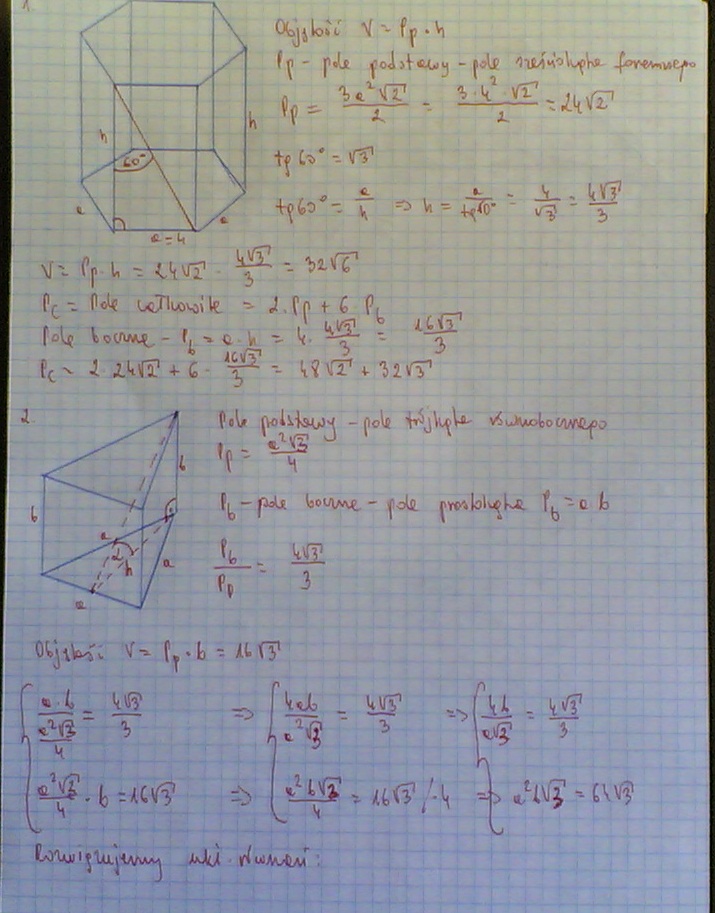 1.
h
60°
h
a
a
a = 4
Objętość V = Pp · h
Pp - pole podstawy - pole sześciokąta foremnego
Pp = 3a²√2 / 2 = 3 · 4² · √2 / 2 = 24√2
tg 60° = √3
tg 60° = a / h => h = a / tg 60° = 4 / √3 = 4√3 / 3
V = Pp · h = 24√2 · 4√3 / 3 = 32√6
Pc = Pole całkowite = 2 · Pp + 6 · Pb
Pole boczne - Pb = a · h = 4 · 4√3 / 3 = 16√3 / 3
Pc = 2 · 24√2 + 6 · 16√3 / 3 = 48√2 + 32√3
2.
b
b
a
α
h
a
a
Pole podstawy - pole trójkąta równobocznego
Pp = a²√3 / 4
Pb - pole boczne - pole prostokąta Pb = a · b
Pb / Pp = 4√3 / 3
Objętość V = Pp · b = 16√3
{ a · b / (a²√3 / 4) = 4√3 / 3 => { 4ab / a²√3 = 4√3 / 3 => { 4b / a√3 = 4√3 / 3
a²√3 / 4 · b = 16√3 => a²b√3 / 4 = 16√3 / · 4 => a²b√3 = 64√3
Rozwiązujemy układ równań: